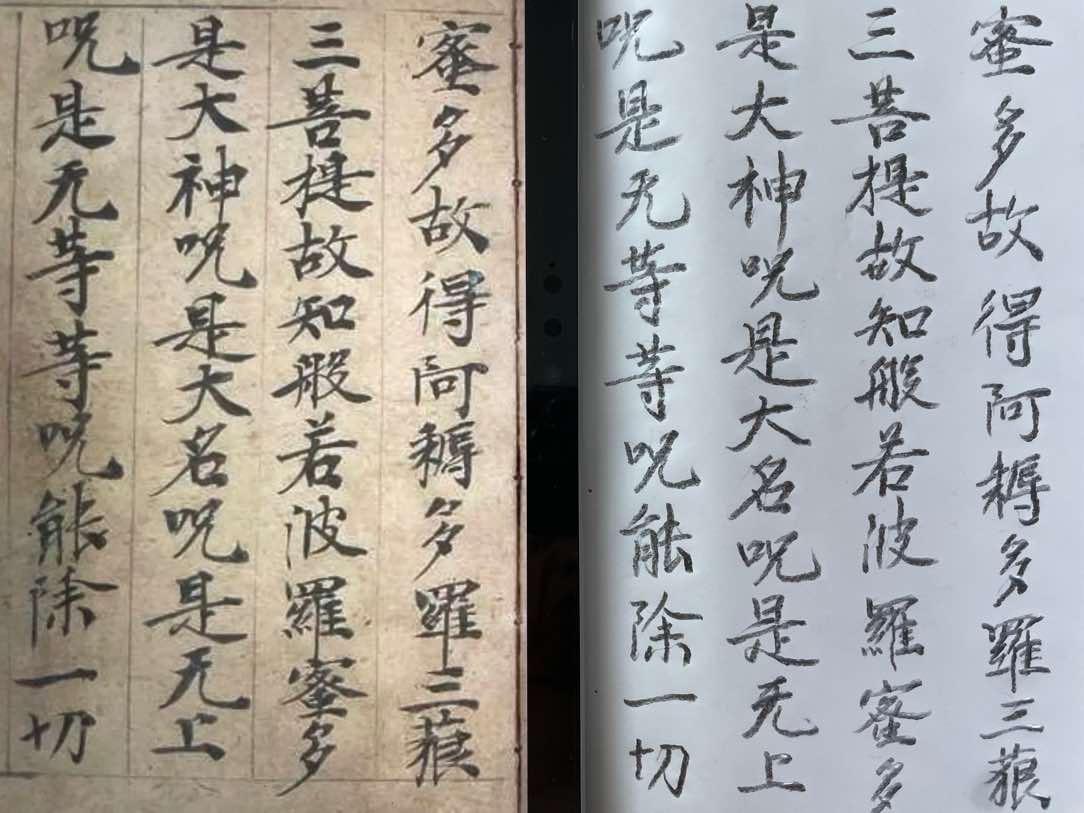 蜜多故得阿耨多羅三藐
三菩提故知般若波羅蜜多
是大神呪是大名呪是无上
呪是无等等呪能除一切
蜜多故得阿耨多羅三藐
三菩提故知般若波羅蜜多
是大神呪是大名呪是无上
呪是无等等呪能除一切